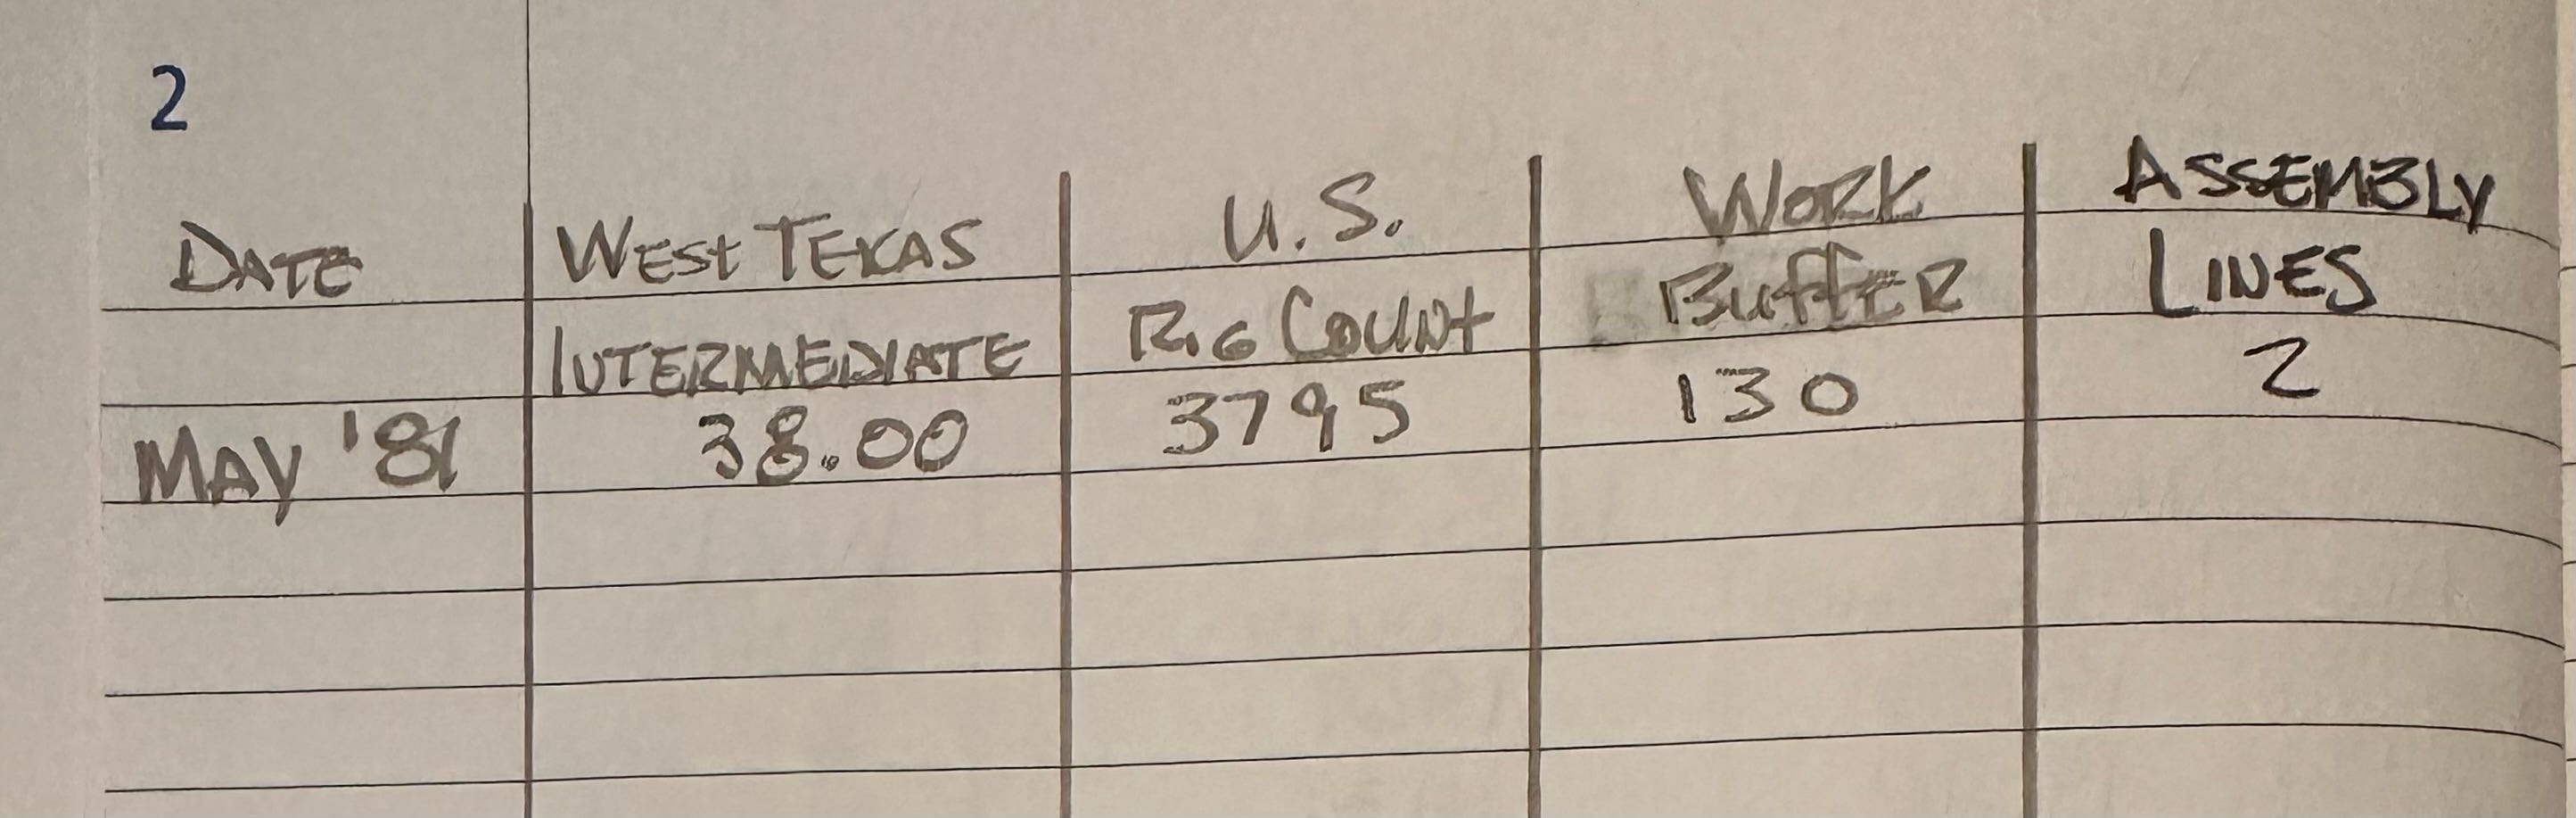 2
DATE WEST TEXAS U.S. WORK ASSEMBLY
INTERMEDIATE RIG COUNT BUFFER LINES
MAY '81 38.00 3795 130 2